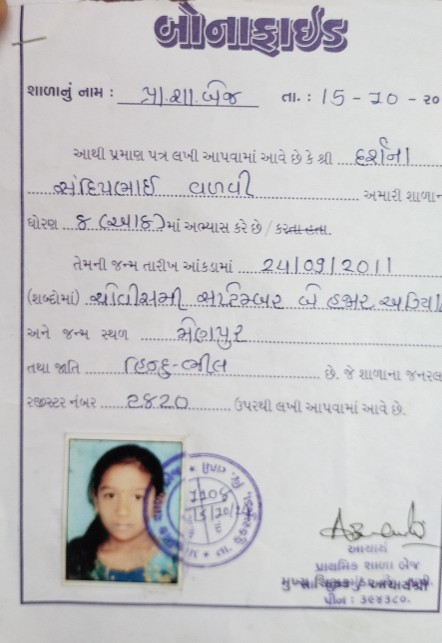 બોનાફાઈડ
શાળાનું નામ : પ્રા.શા.બેજ તા. : 15 - 10 - 20
આથી પ્રમાણ પત્ર લખી આપવામાં આવે છે કે શ્રી દર્શના
સંદિપભાઈ વળવી અમારી શાળાન
ધોરણ ૮ (આઠ) માં અભ્યાસ કરે છે / કરતા હતા.
તેમની જન્મ તારીખ આંકડામાં 24/09/2011
(શબ્દોમાં) ચોવીસમી સપ્ટેમ્બર બે હજાર અગિયા
અને જન્મ સ્થળ મેણપુર
તથા જાતિ હિન્દુ-ભીલ છે. જે શાળાના જનરલ
રજીસ્ટર નંબર ૨૪૨૦ ઉપરથી લખી આપવામાં આવે છે.
આચાર્ય
પ્રાથમિક શાળા બેજ
પીન : ૩૯૪૩૮૦.